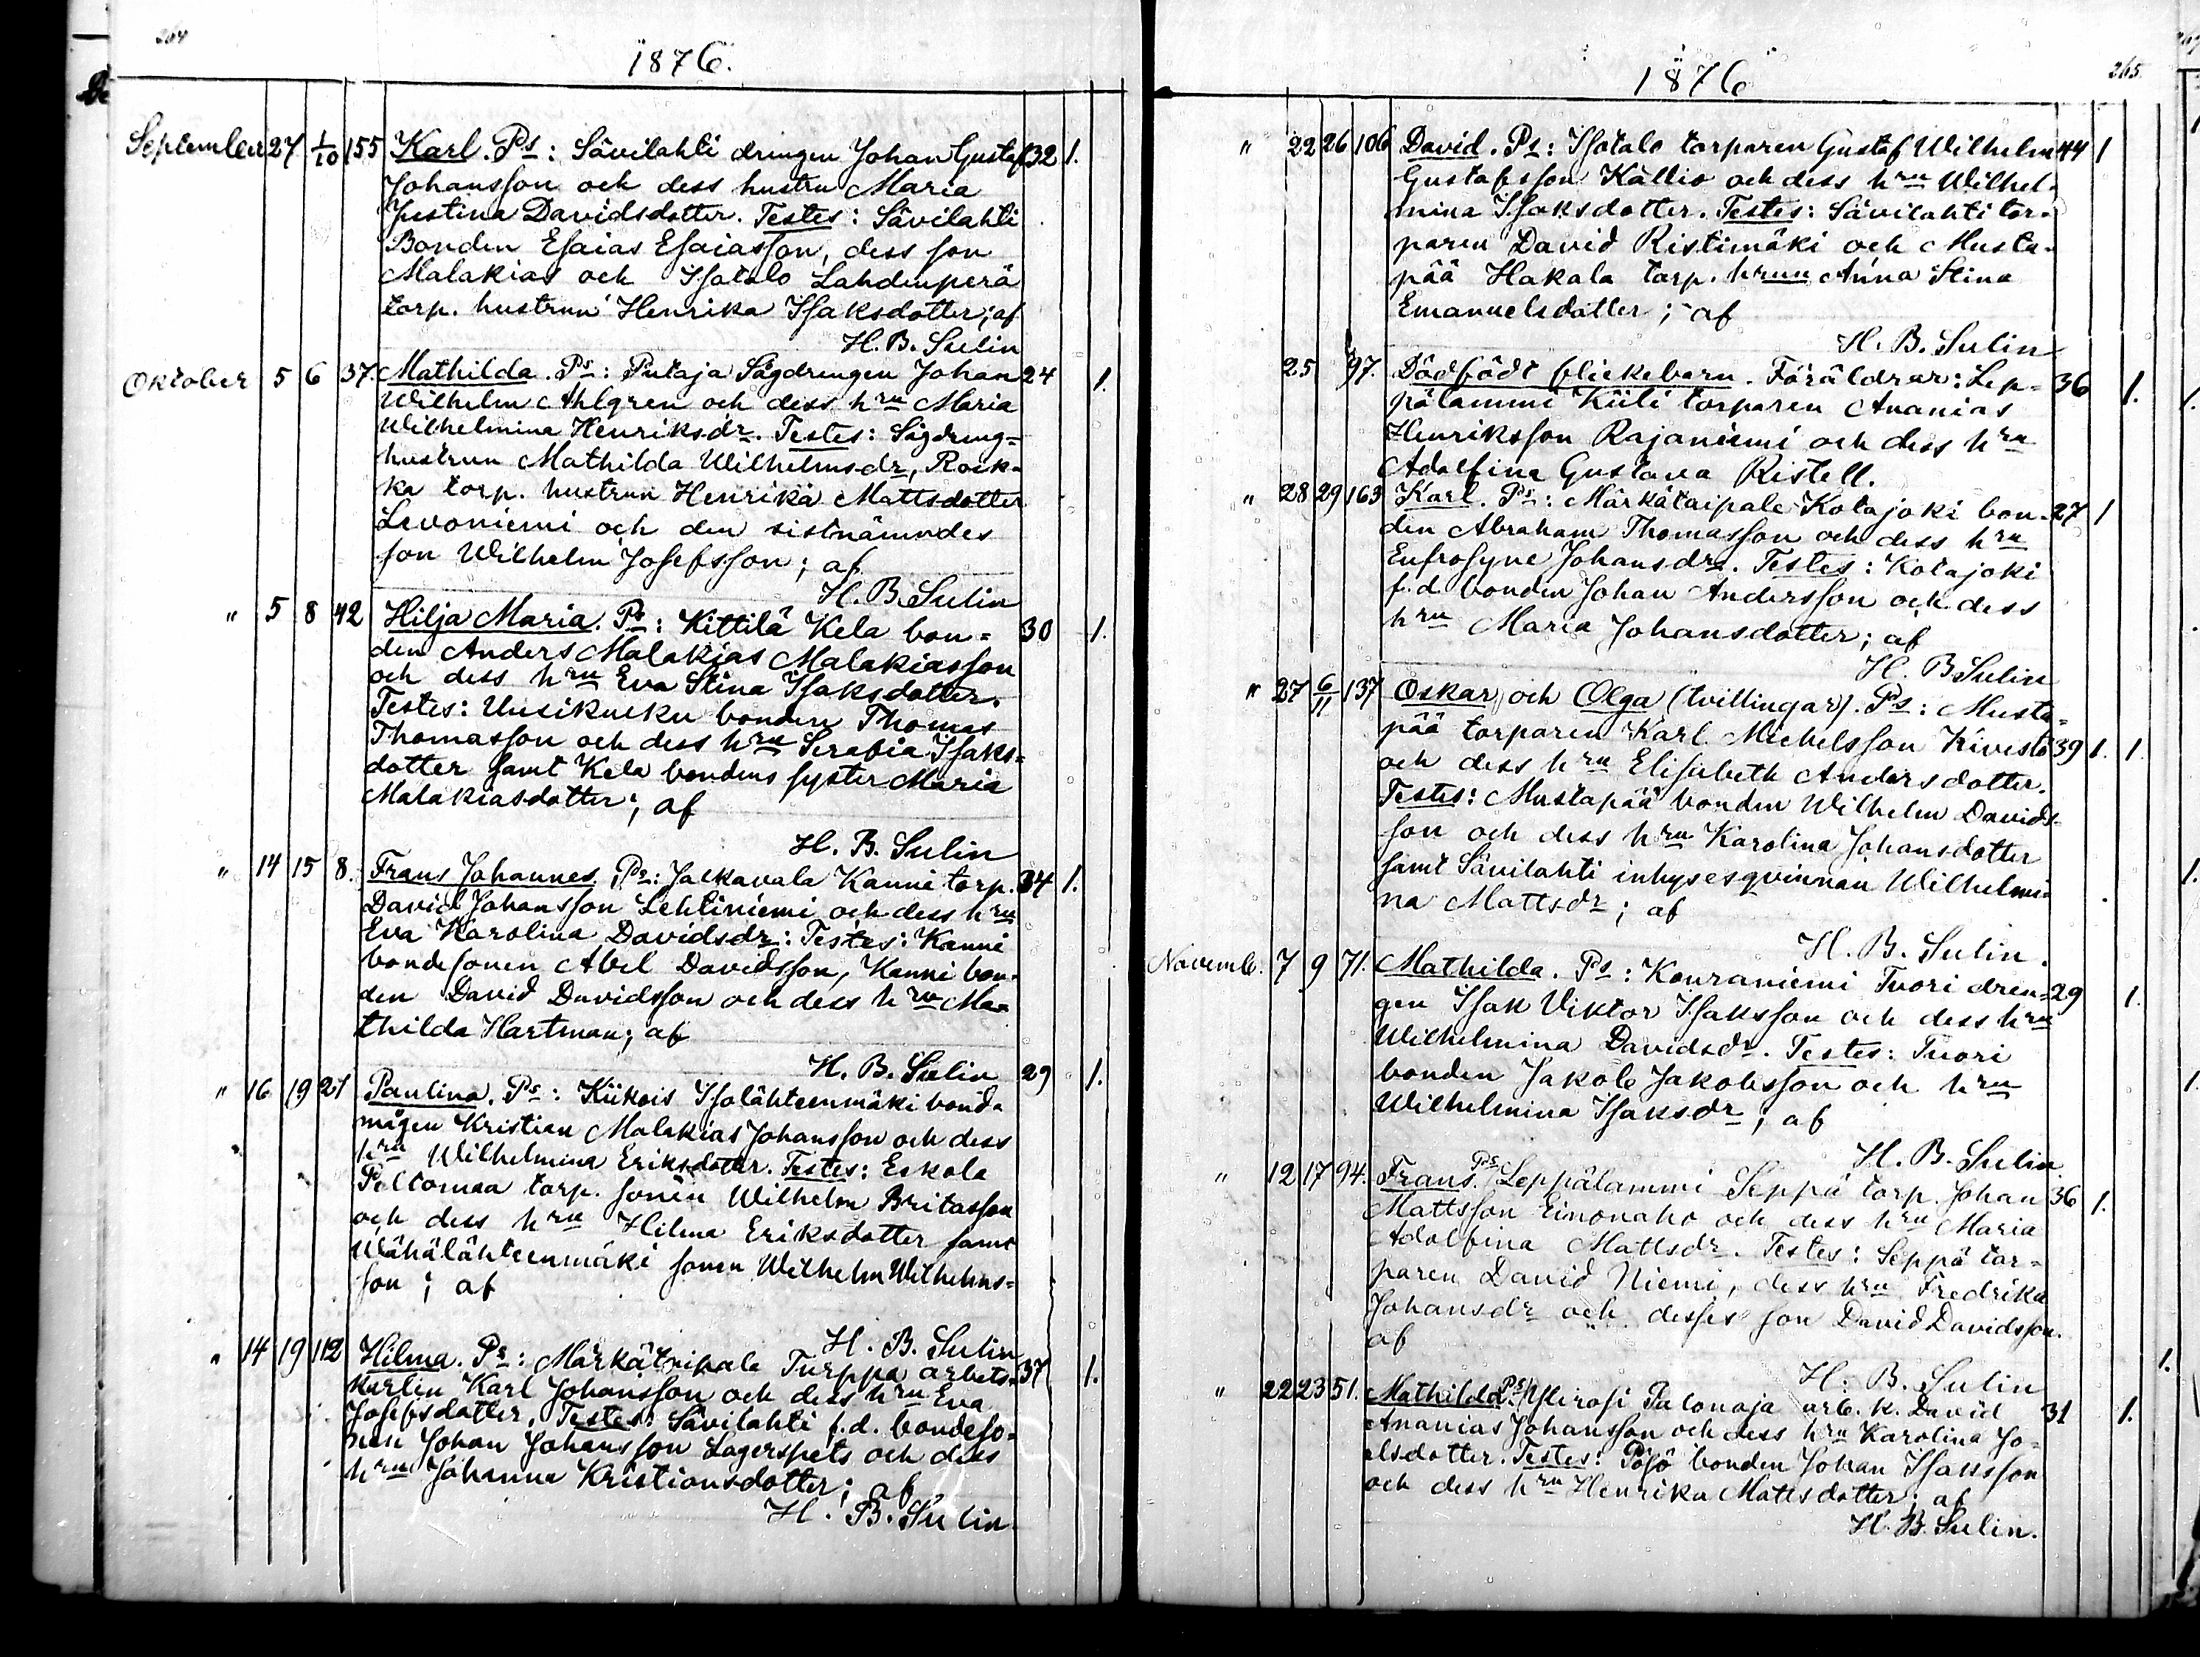 264
1876.
September 27 1/10 155 Karl. Ps: Sävilahti drängen Johan Gustaf 32 1.
Johansson och dess hustru Maria
Justina Davidsdotter. Testes: Sävilahti
Bonden Esaias Esaiasson, dess son
Malakias och Isotalo Lahdenperä
torp. hustrun Henrika Isaksdotter; af
H. B. Sulin
Oktober 5 6 37. Mathilda. Ps: Putaja Sågdrengen Johan 24 1.
Wilhelm Ahlgren och dess hru Maria
Wilhelmina Henriksdr. Testes: Sågdreng-
hustrun Mathilda Wilhelmsdr, Rock-
ka torp. hustrun Henrika Mattsdotter
Levoniemi och den sistnämndes
son Wilhelm Josefsson; af
H. B. Sulin
" 5 8 42 Hilja Maria. Ps: Kittilä Kela bon- 30 1.
den Anders Malakias Malakiasson
och dess hru Eva Stina Isaksdotter.
Testes: Uusikueku bonden Thomas
Thomasson och dess hru Serafia Isaks-
dotter samt Kela bondens syster Maria
Malakiasdotter; af
H. B. Sulin
" 14 15 8. Frans Johannes, Ps: Jalkavala Kanni torp. 34 1.
David Johansson Lehtiniemi och dess hru
Eva Karolina Davidsdr: Testes: Kanni
bondesonen Abel Davidsson, Kanni bon-
den David Davidsson och dess hru Ma-
thilda Hartman; af
H. B. Sulin
" 16 19 21 Paulina. Ps: Kiikois Isolähteenmäki bonda 29 1.
mågen Kristian Malakias Johansson och dess
hru Wilhelmina Eriksdotter. Testes: Eskola
Peltomaa torp. sonen Wilhelm Britasson
och dess hru Hilma Eriksdotter samt
Wähälähteenmäki sonen Wilhelm Wilhelms-
son; af
H. B. Sulin
" 14 19 112 Hilma. Ps: Märkätaipale Turppa arbets- 37 1.
karlen Karl Johansson och dess hru Eva
Josefsdotter. Testes: Sävilahti f.d. bondeso-
nen Johan Johansson Lagerspets och dess
hru Johanna Kristiansdotter; af
H. B. Sulin
1876
265
" 22 26 106 David. Ps: Isotalo torparen Gustaf Wilhelm 44 1
Gustafsson Kallio och dess hru Wilhel-
mina Isaksdotter. Testes: Sävilahti tor-
paren David Ristimäki och Musta-
pää Hakala torp. hrun Anna Stina
Emanuelsdotter; af
H. B. Sulin
25 97. Dödfödt flickebarn. Föräldrar: Lep- 36 1.
pälammi Kiili torparen Ananias
Henriksson Rajaniemi och dess hru
Adolfina Gustava Ristell.
" 28 29 163 Karl. Ps: Märkätaipale Kotajoki bon- 27 1
den Abraham Thomasson och dess hru
Eufrosyne Johansdr. Testes: Kotajoki
f.d. bonden Johan Andersson och dess
hru Maria Johansdotter; af
H. B. Sulin
" 27 6/11 137 Oskar och Olga (tvillingar). Ps: Musta-
pää torparen Karl Michelsson Kivistö 39 1. 1.
och dess hru Elisabeth Andersdotter.
Testes: Mustapää bonden Wilhelm Davids-
son och dess hru Karolina Johansdotter
samt Sävilahti inhysesqvinnan Wilhelmi-
na Mattsdr; af
H. B. Sulin.
Novemb. 7 9 71. Mathilda. Ps: Kouraniemi Tuori dren- 29 1.
gen Isak Viktor Isaksson och dess hru
Wilhelmina Davidsdr. Testes: Tuori
bonden Jakob Jakobsson och hru
Wilhelmina Isaksdr; af
H. B. Sulin
" 12 17 94. Frans. Ps: Leppälammi Seppä torp. Johan 36 1.
Mattsson Einonaho och dess hru Maria
Adolfina Mattsdr. Testes: Seppä tor-
paren David Niemi, dess hru Fredrika
Johansdr och desses son David Davidsson.
af
H. B. Sulin
" 22 23 51. Mathilda. Ps: Palonoja arb. k. David 31 1.
Ananias Johansson och dess hru Karolina Jo-
elsdotter. Testes: Pöjö bonden Johan Isaksson
och dess hru Henrika Mattsdotter; af
H. B. Sulin.